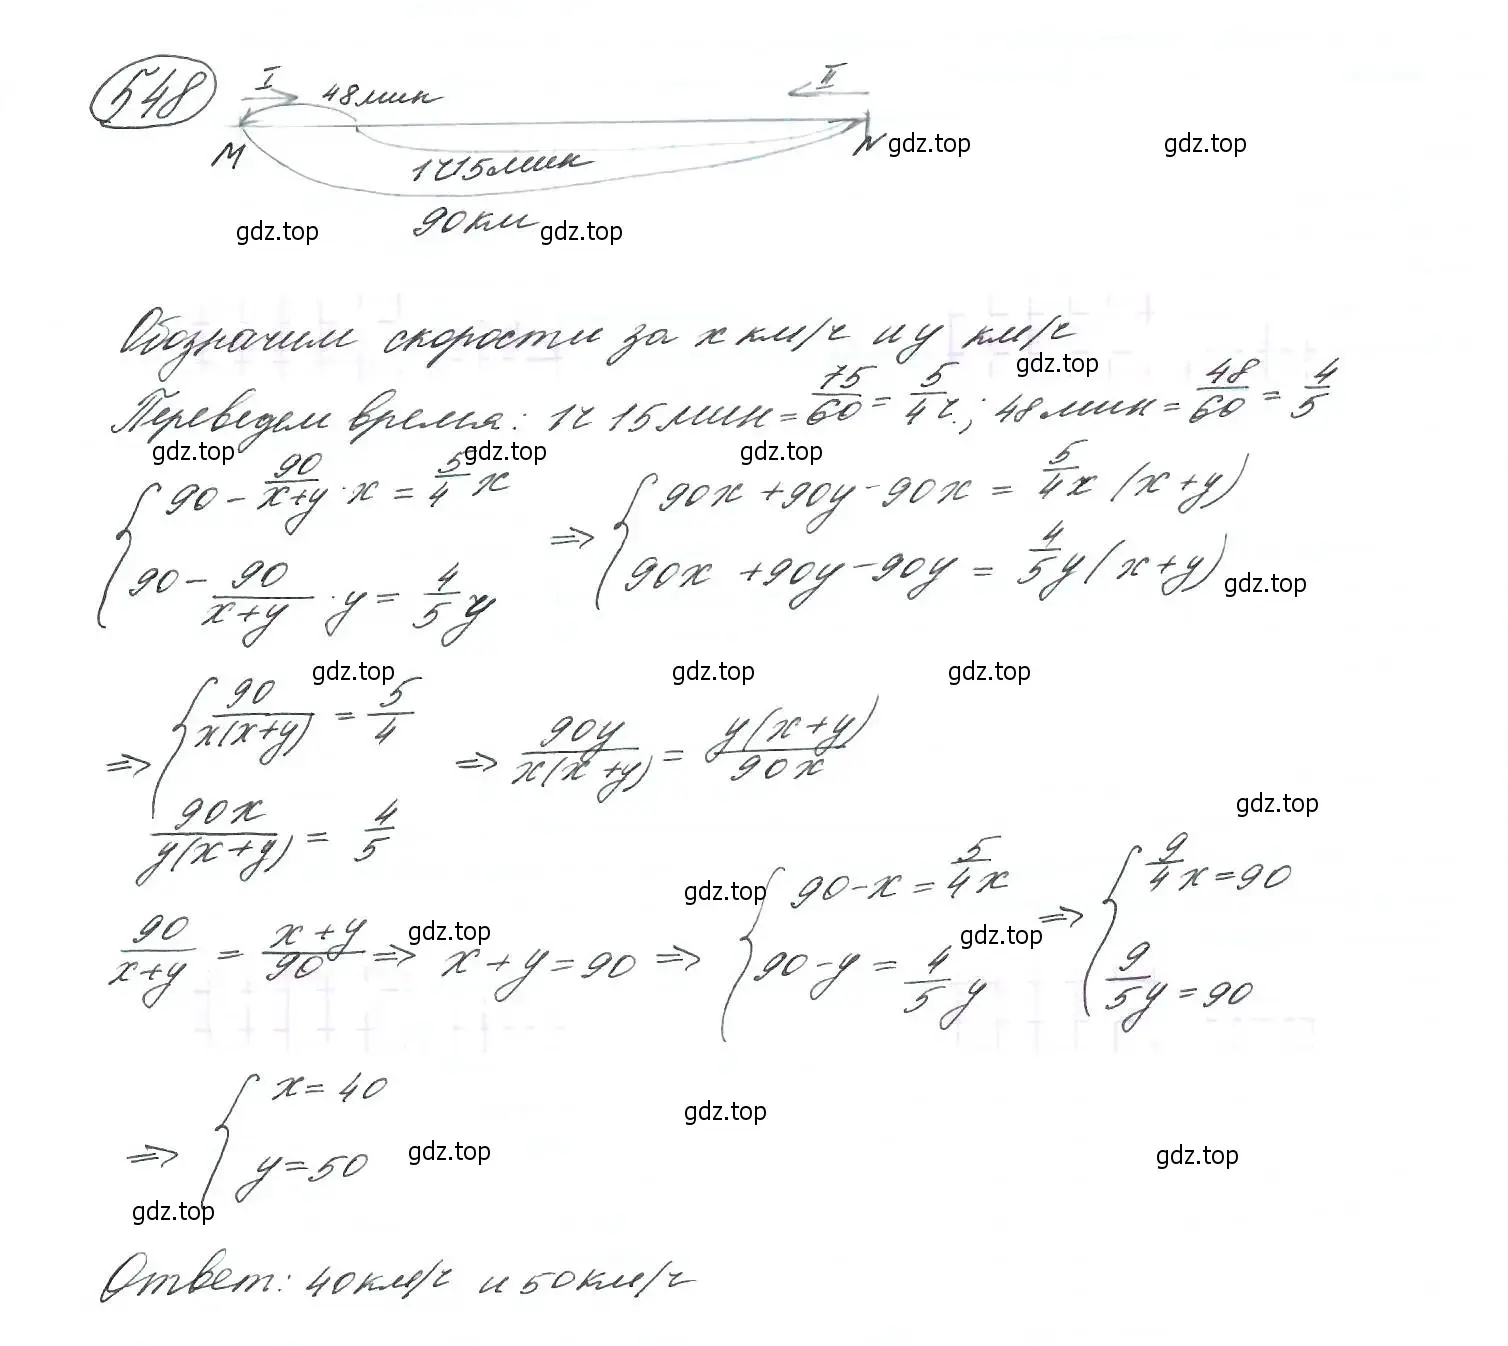 548
I 48мин II
M N gdz.top gdz.top
1ч15мин
gdz.top 90км gdz.top
Обозначим скорости за x км/ч и y км/ч
gdz.top
Переведем время: 1ч 15мин = 75/60 = 5/4 ч.; 48мин = 48/60 = 4/5
gdz.top gdz.top gdz.top
{ 90 - 90/(x+y) · x = 5/4 x ⇒ { 90x + 90y - 90x = 5/4 x (x+y)
90 - 90/(x+y) · y = 4/5 y 90x + 90y - 90y = 4/5 y (x+y) gdz.top
gdz.top gdz.top gdz.top
⇒ { 90/(x(x+y)) = 5/4 ⇒ 90y/(x(x+y)) = y(x+y)/(90x)
gdz.top
90x/(y(x+y)) = 4/5
gdz.top { 90 - x = 5/4 x ⇒ { 9/4 x = 90
90/(x+y) = (x+y)/90 ⇒ gdz.top x + y = 90 ⇒ 90 - y = 4/5 y gdz.top 9/5 y = 90
⇒ { x = 40
gdz.top
y = 50 gdz.top gdz.top
gdz.top
Ответ: 40км/ч и 50км/ч